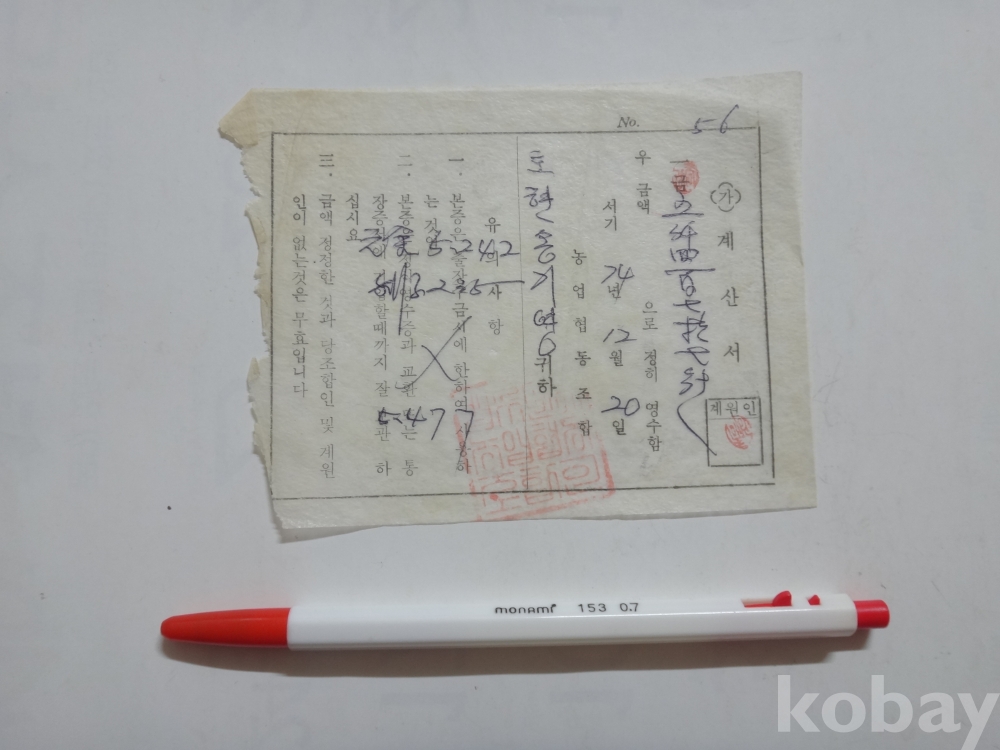 No. 56
㉮ 계산서
一금 五仟四百七拾七
계원인
우 금액 으로 정히 영수함
서기 74년 12월 20일
농업협동조합
토현 송기 귀하
유의사항
一. 본증은 출장수금시에 한하여
는 것
二. 본증은 영수증과 교환 는 통
할때까지 잘 관 하
십시요
三. 금액 정정한 것과 당조합인 및 계원
인이 없는것은 무효입니다
5-242
235
5-477
monami 153 0.7
kobay